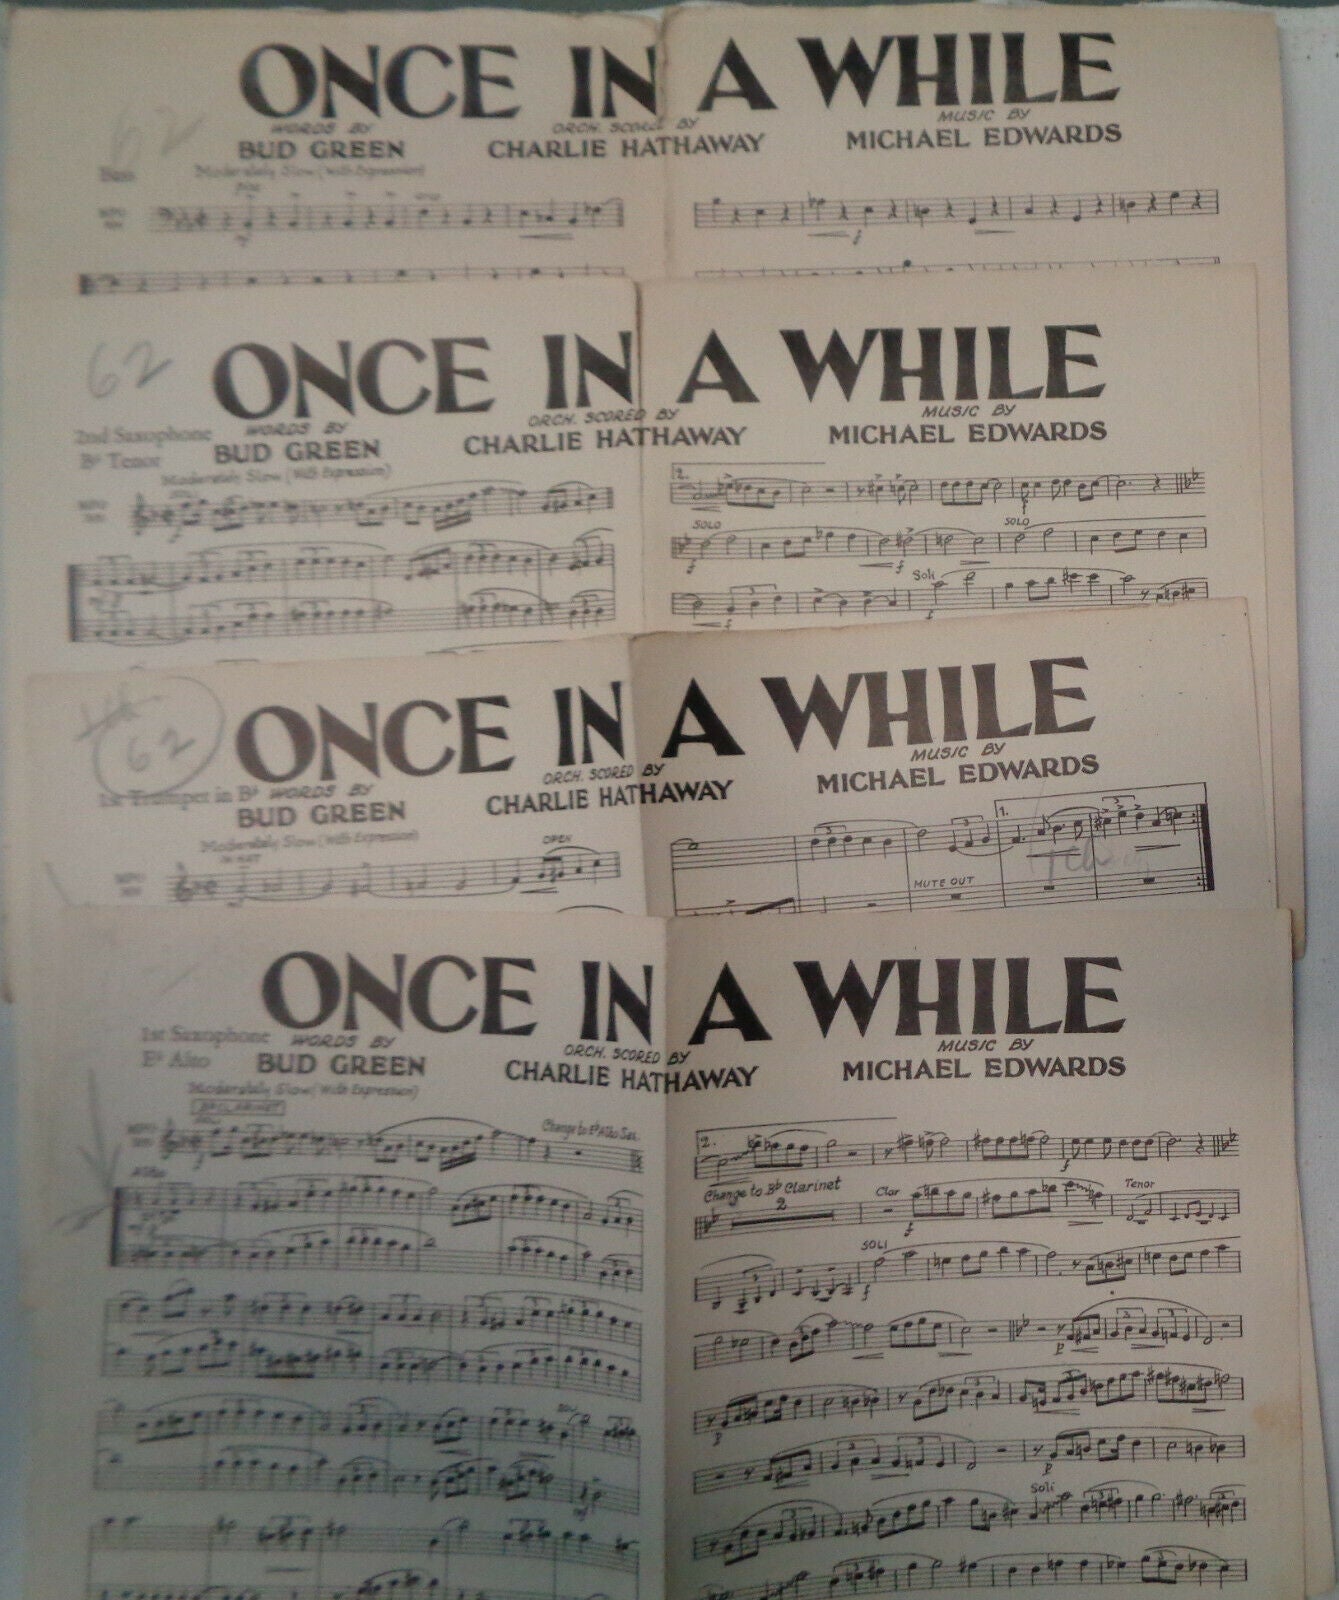 ONCE IN A WHILE
62
WORDS BY
BUD GREEN
ORCH. SCORED BY
CHARLIE HATHAWAY
MUSIC BY
MICHAEL EDWARDS
Bass
Moderately Slow (With Expression)
f
f
62
ONCE IN A WHILE
2nd Saxophone
B♭ Tenor
WORDS BY
BUD GREEN
ORCH. SCORED BY
CHARLIE HATHAWAY
MUSIC BY
MICHAEL EDWARDS
Moderately Slow (With Expression)
SOLI
2.
f
SOLO
SOLO
f
f
Soli
f
62
ONCE IN A WHILE
1st Trumpet in B♭
WORDS BY
BUD GREEN
ORCH. SCORED BY
CHARLIE HATHAWAY
MUSIC BY
MICHAEL EDWARDS
Moderately Slow (With Expression)
IN HAT
OPEN
1.
3
3
MUTE OUT
ONCE IN A WHILE
1st Saxophone
E♭ Alto
WORDS BY
BUD GREEN
ORCH. SCORED BY
CHARLIE HATHAWAY
MUSIC BY
MICHAEL EDWARDS
Moderately Slow (With Expression)
B♭ CLARINET
SOLI
Change to E♭ Alto Sax.
Alto
2.
f
Change to B♭ Clarinet
2
Clar
f
Tenor
SOLI
f
p
3
3
p
3
p
Soli